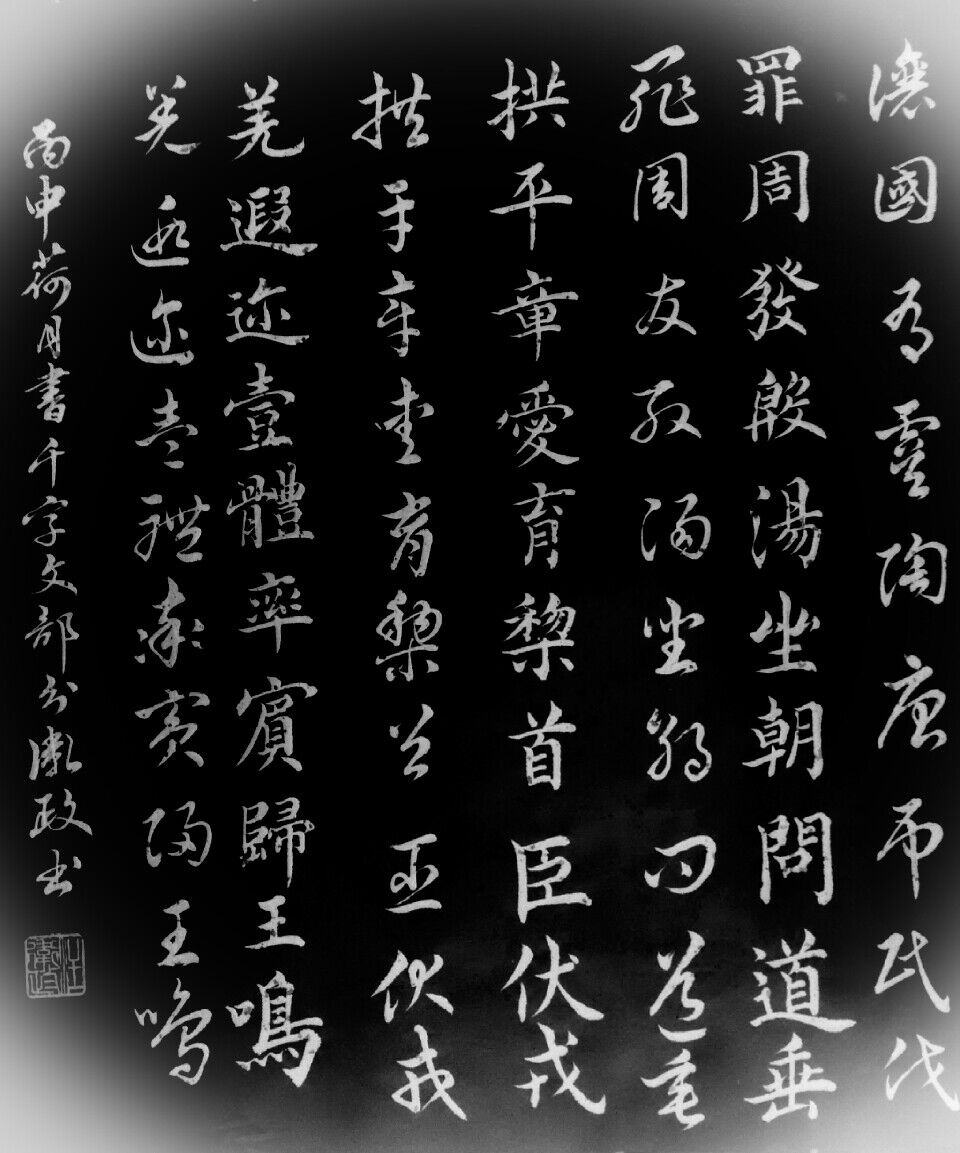 讓國有虞陶唐吊民伐
罪周發殷湯坐朝問道垂
罪周發殷湯坐朝問道垂
拱平章愛育黎首臣伏戎
拱平章愛育黎首臣伏戎
羌遐迩壹體率賓歸王鳴
羌遐迩壹體率賓歸王鳴
丙申荷月書千字文部分政书